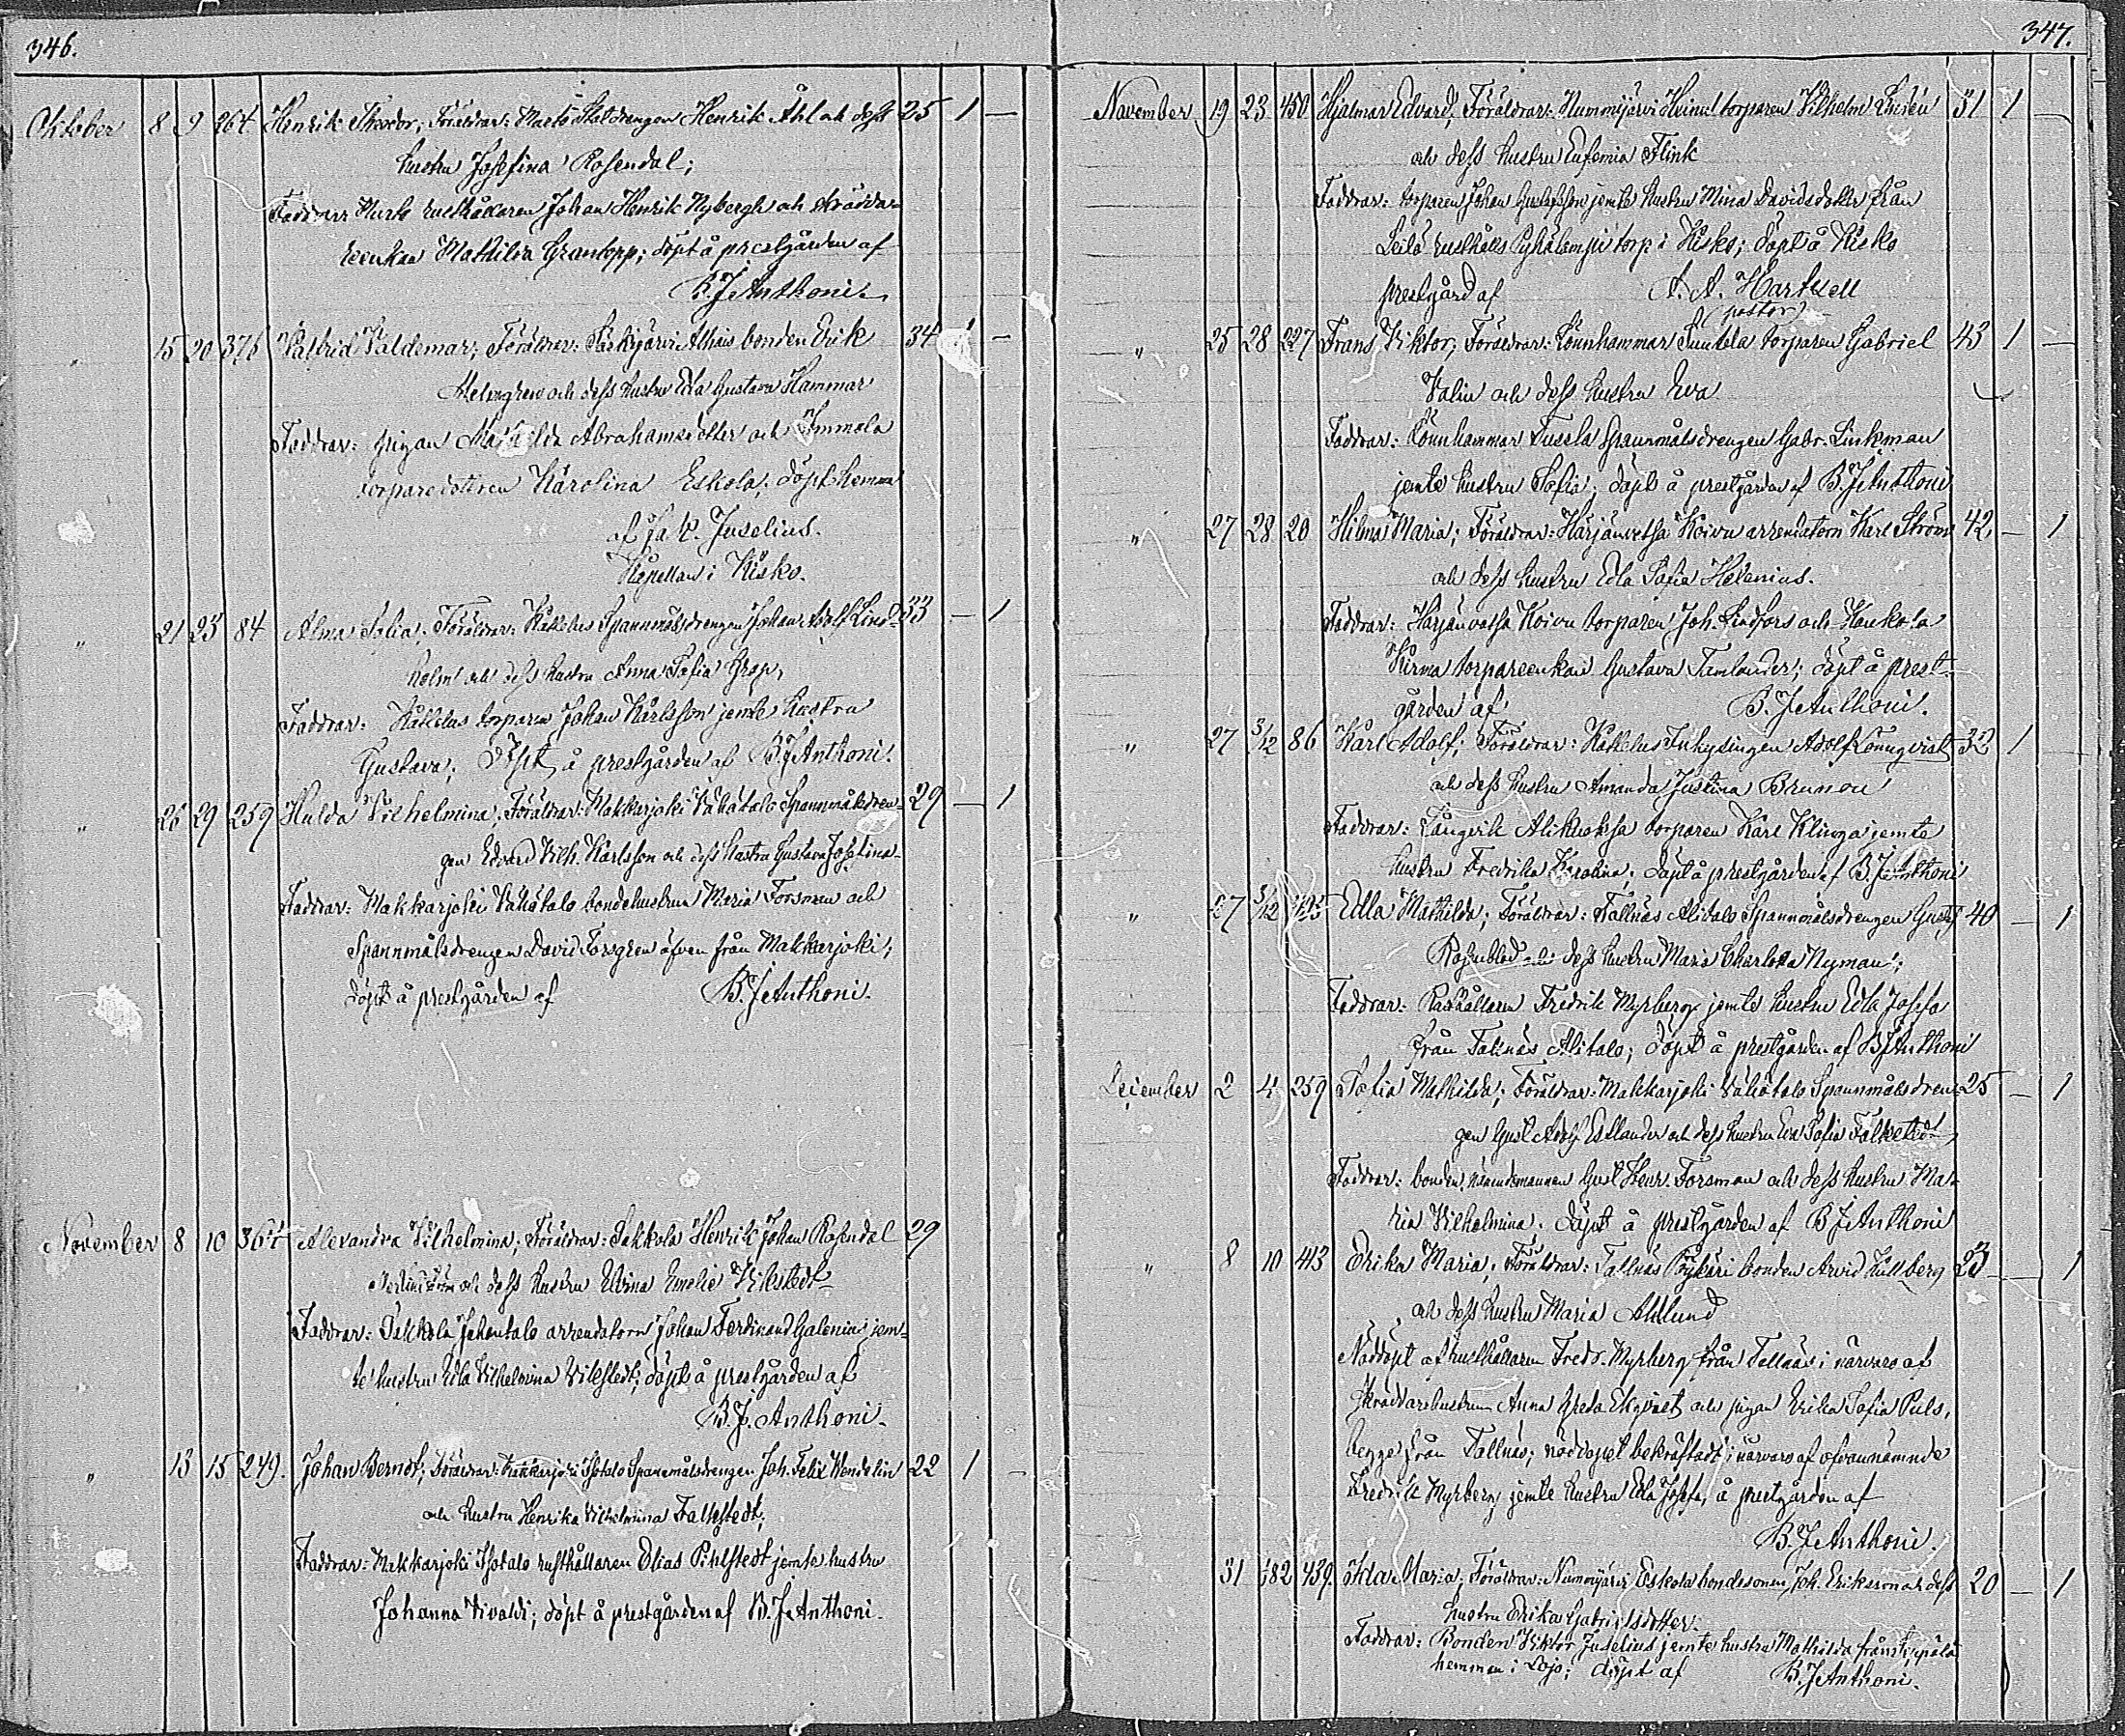 346.
October 8 9 264 Henrik Theodor; Föräldrar: Marto Staldrengen Henrik Åhl och dess 25 1 —
hustru Josefina Rosendal;
Faddrar: rusthållaren Johan Henrik Nybergh och skräddare
enkan Mathilda Grantopp; döpt å prestgården af
B. J. Anthoni.
" 15 20 376 Valdemar; Föräldrar: bonden Erik 34 1 —
Malmgren och dess hustru Edla Gustava Hammar
Faddrar: pigan Mathilda Abrahamsdotter och Immola
torparedottren Karolina Eskola; döpt hemma
af Juselius.
Kapellan i Kisko.
" 21 23 84 Alma Sofia; Föräldrar: Spannmålsdrengen Johan Adolf Lind- 33 — 1
holm och dess hustru Anna Sofia
Faddrar: torparen Johan Karlsson jemte hustru
Gustava; Döpt å prestgården af B. J. Anthoni.
" 26 29 259 Hulda Vilhelmina; Föräldrar: Makkarjoki Vähätalo Spannmålsdren- 29 — 1
gen Edvard Vilh. Karlsson och dess hustru Gustava Josefina
Faddrar: Makkarjoki Vähätalo bondehustrun Maria Forsman och
Spannmålsdrengen David Forsgren äfven från Makkarjoki;
döpt å prestgården af B. J. Anthoni.
November 8 10 364 Alexandra Vilhelmina; Föräldrar: Sakkola Henrik Johan Rosendal 29
och dess hustru Elvina Emelie Vikstedt
Faddrar: Sakkola arrendatorn Johan Ferdinand Galenius jem-
te hustru Edla Vilhelmina Vikstedt; döpt å prestgården af
B. J. Anthoni.
" 13 15 249. Johan Berndt; Föräldrar: Makkarjoki Isotalo Spannmålsdrengen Joh. Felix Wendelin 22 1 —
och hustru Henrika Vilhelmina Falkstedt;
Faddrar: Makkarjoki Isotalo rusthållaren Elias Pihlstedt jemte hustru
Johanna Vivaldi; döpt å prestgården af B. J. Anthoni.
347.
November 19 23 450 Hjalmar Edvard; Föräldrar: Nummijärvi torparen Vilhelm Lindén 31 1 —
och dess hustru Eufemia Flink
Faddrar: torparen Johan Gustafsson jemte hustru Mina Davidsdotter från
Leilä rusthålls torp i Kisko; döpt å Kisko
prestgård af A. A. Hartvell
(pastor)
" 25 28 227 Frans Viktor; Föräldrar: Lönnhammar torparen Gabriel 43 1 —
Valin och dess hustru Eva
Faddrar: Lönnhammar Spannmålsdrengen Gabr. Linkman
jemte hustru Sofia; döpt å prestgården af B. J. Anthoni
" 27 28 20 Hilma Maria; Föräldrar: Härjänvatsa Koivu arrendatorn Karl Ström 42 — 1
och dess hustru Edla Sofia Helenius.
Faddrar: Härjänvatsa Koivu torparen Joh. Lindfors och Haukola
torpareenkan Gustava Tamlander; döpt å prest-
gården af B. J. Anthoni.
" 27 3/12 86 Karl Adolf; Föräldrar: Inhysingen Adolf Lönnqvist 32 1
och dess hustru Amanda Justina Brunou
Faddrar: Långvik torparen Karl Klinga jemte
hustru Fredrika Karolina; döpt å prestgården af B. J. Anthoni
" 27 3/12 425 Edla Mathilda; Föräldrar: Tallnäs Alitalo Spannmålsdrengen Gustaf 40 — 1
Rosenblad och dess hustru Maria Charlotta Nyman;
Faddrar: Rusthållaren Fredrik Myrberg jemte hustru Edla Josefa
från Tallnäs Alitalo; döpt å prestgården af B. J. Anthoni
December 2 4 259 Sofia Mathilda; Föräldrar: Makkarjoki Vähätalo Spannmålsdren- 25 — 1
gen Gust. Adolf Estlander och dess hustru Eva Sofia Falkstedt
Faddrar: bonden, nämndemannen Gust. Henr. Forsman och dess hustru Ma-
ria Vilhelmina. döpt å prestgården af B. J. Anthoni
" 8 10 413 Erika Maria; Föräldrar: Tallnäs Pöykäri bonden Arvid Kullberg 23 — 1
och dess hustru Maria Ahllund
Nöddöpt af rusthållaren Fredr. Myrberg från Tallnäs i närvaro af
Skräddarehustrun Anna Greta Ekqvist och pigan Erika Sofia Puls,
begge från Tallnäs; nöddopet bekräftadt i närvaro af ofvannämnde
Fredrik Myrberg jemte hustru Edla Josefa, å prestgården af
B. J. Anthoni.
31 439. Ida Maria; Föräldrar: Nummijärvi Eskola bondesonen Joh. Eriksson och dess 20 — 1
hustru Erika Gabrielsdotter.
Faddrar: Bonden Viktor Juselius jemte hustru Mathilda från
hemman i Lojo; döpt af B. J. Anthoni.